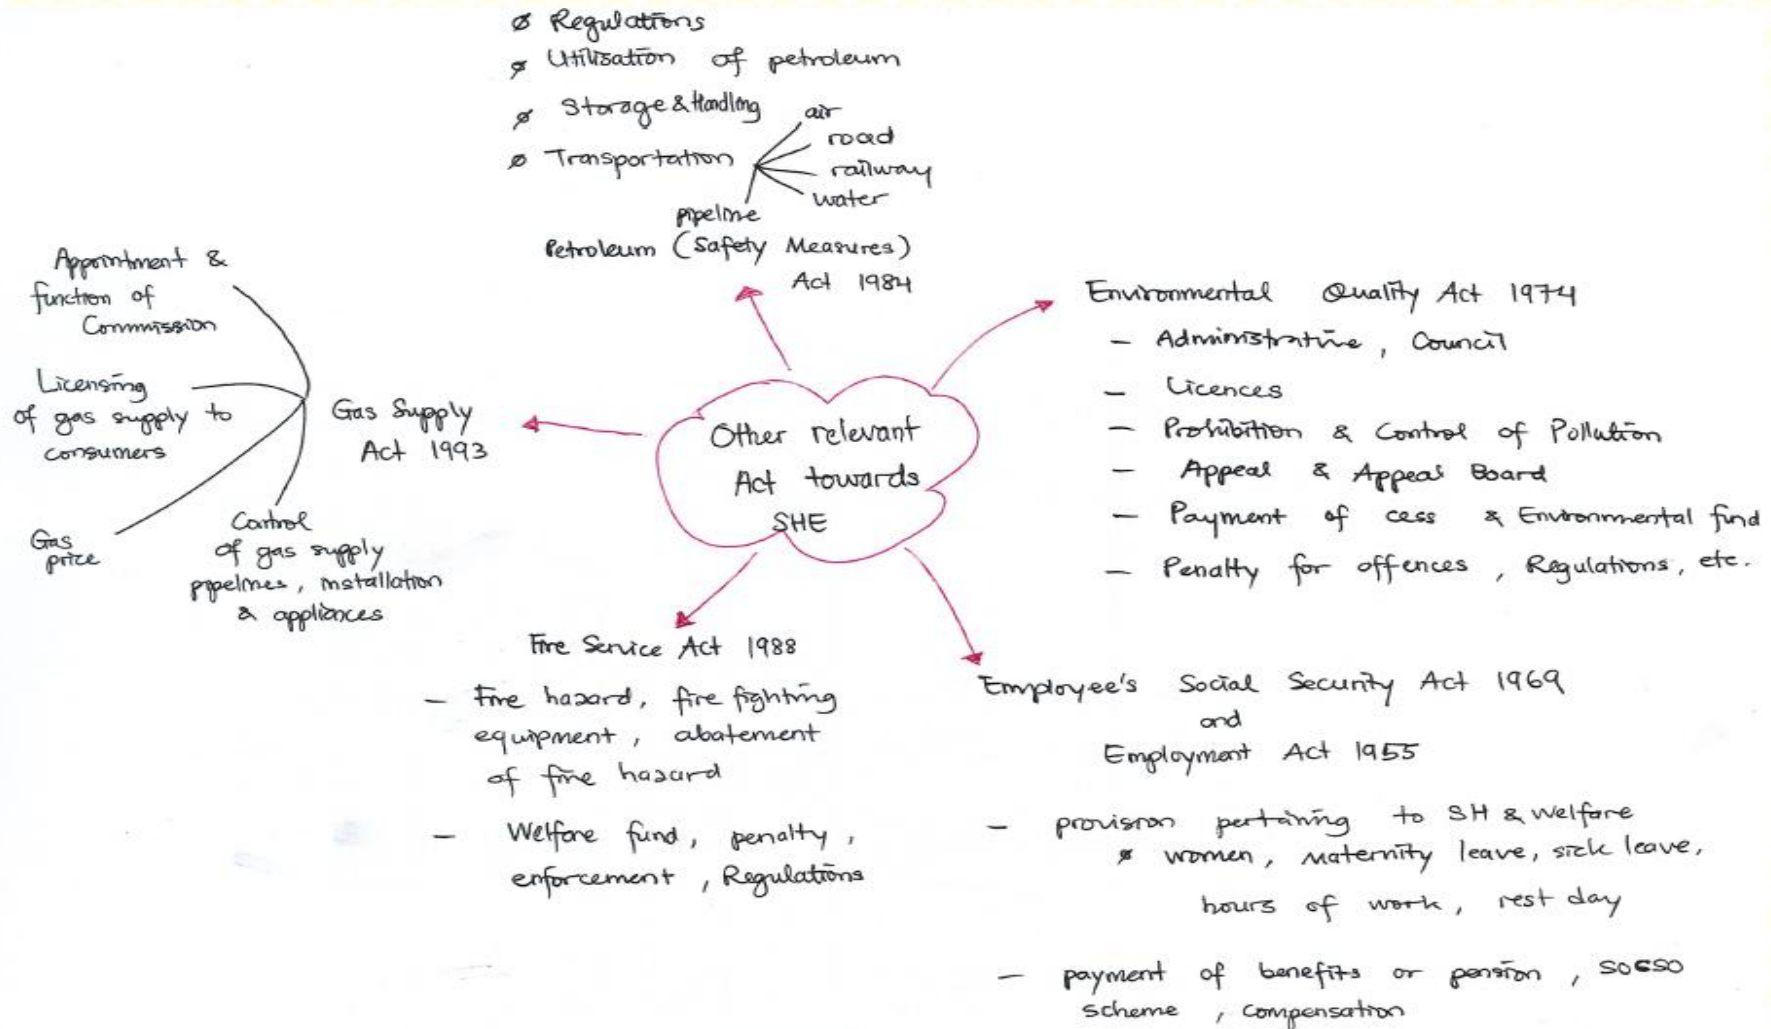 Regulations
Utilisation of petroleum
Storage & Handling
Transportation
air
road
railway
water
pipeline
Petroleum (Safety Measures)
Act 1984
Appointment &
function of
Commission
Licensing
of gas supply to
consumers
Gas
price
Control
of gas supply
pipelines, installation
& appliances
Gas Supply
Act 1993
Other relevant
Act towards
SHE
Environmental Quality Act 1974
- Administrative, Council
- Licences
- Prohibition & Control of Pollution
- Appeal & Appeal Board
- Payment of cess & Environmental fund
- Penalty for offences, Regulations, etc.
Fire Service Act 1988
- Fire hazard, fire fighting
equipment, abatement
of fire hazard
- Welfare fund, penalty,
enforcement, Regulations
Employee's Social Security Act 1969
and
Employment Act 1955
- provision pertaining to SH & welfare
women, maternity leave, sick leave,
hours of work, rest day
- payment of benefits or pension, SOCSO
scheme, compensation